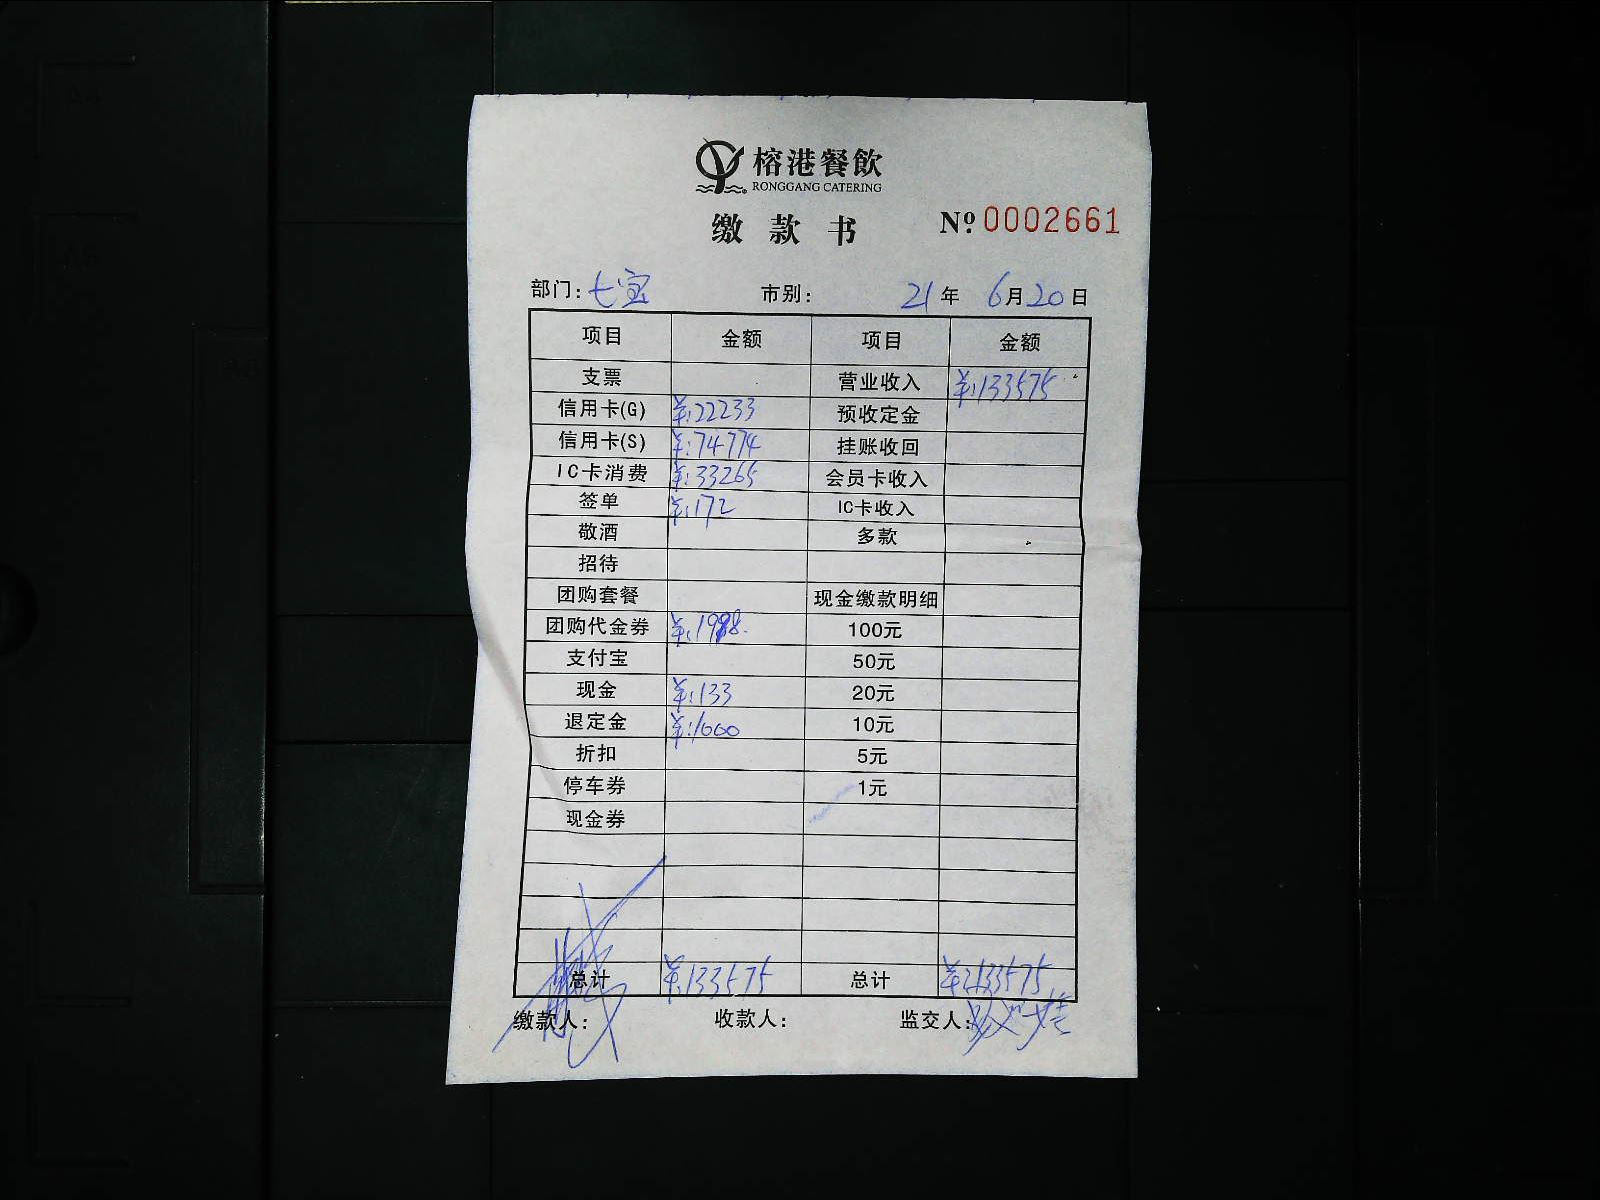 榕港餐飲
RONGGANG CATERING
缴款书 Nº 0002661
部门: 七宝 市别: 21年 6月20日
项目 金额 项目 金额
支票 营业收入 ¥:133575
信用卡(G) ¥:22233 预收定金
信用卡(S) ¥:74774 挂账收回
IC卡消费 ¥:33265 会员卡收入
签单 ¥:172 IC卡收入
敬酒 多款
招待
团购套餐 现金缴款明细
团购代金券 ¥:1998 100元
支付宝 50元
现金 ¥:133 20元
退定金 ¥:1000 10元
折扣 5元
停车券 1元
现金券
总计 ¥:133575 总计 ¥:133575
缴款人: 收款人: 监交人: